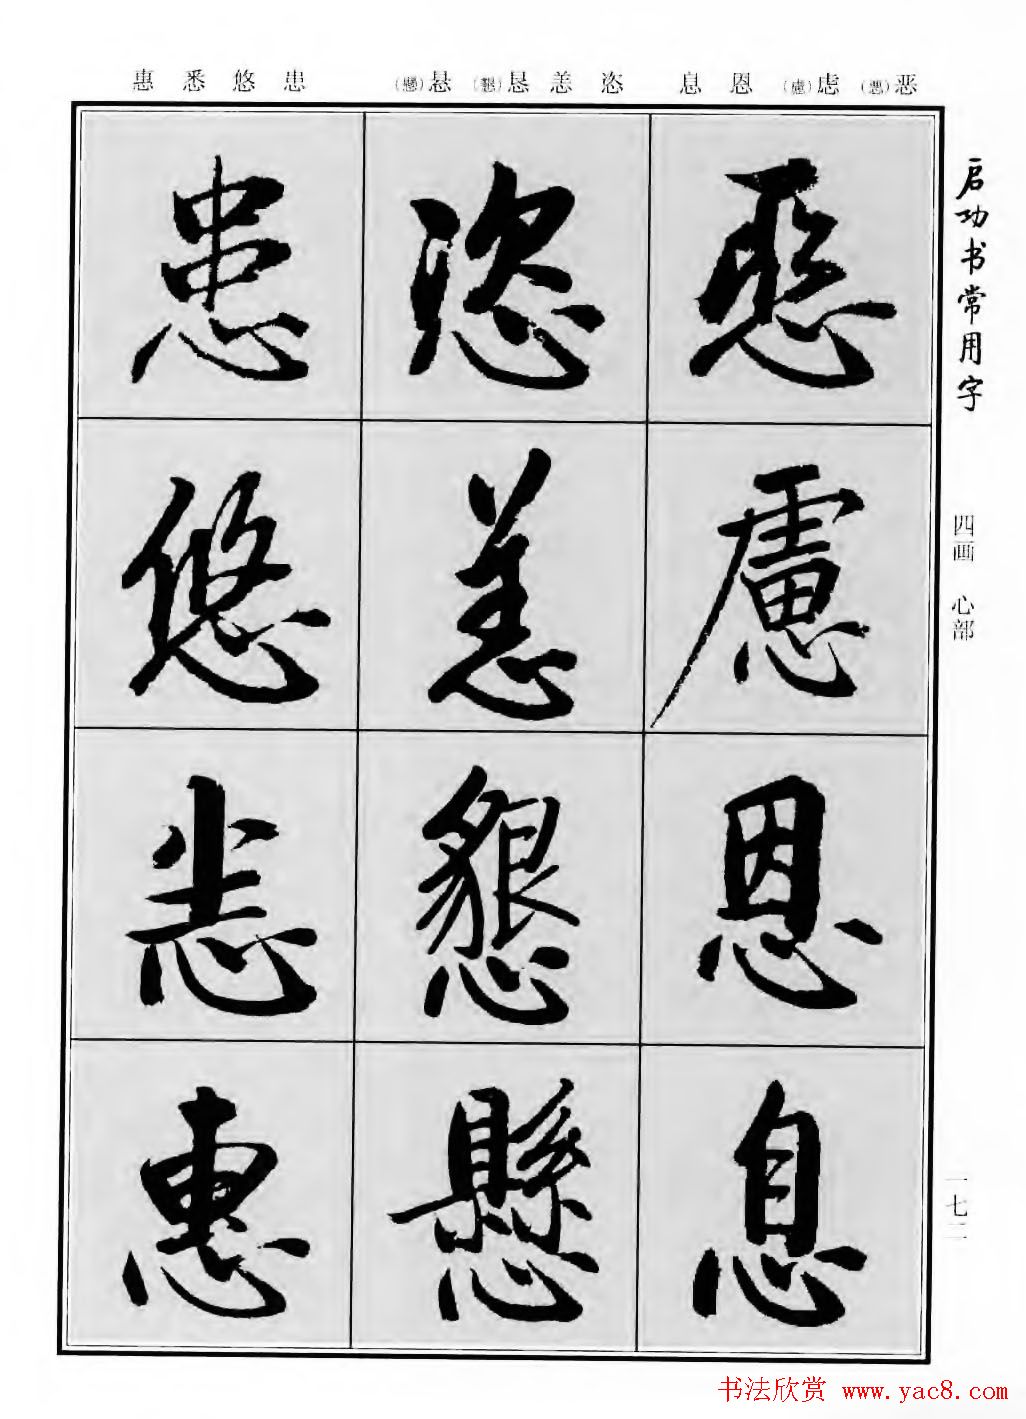 惠 悉 悠 患 (懸)悬 (懇)恳 恙 恣 息 恩 (慮)虑 (惡)恶
启功书常用字
四画 心部
一七二
恶 慮 恩 息
恣 恙 懇 懸
患 悠 悉 惠
书法欣赏 www.yac8.com